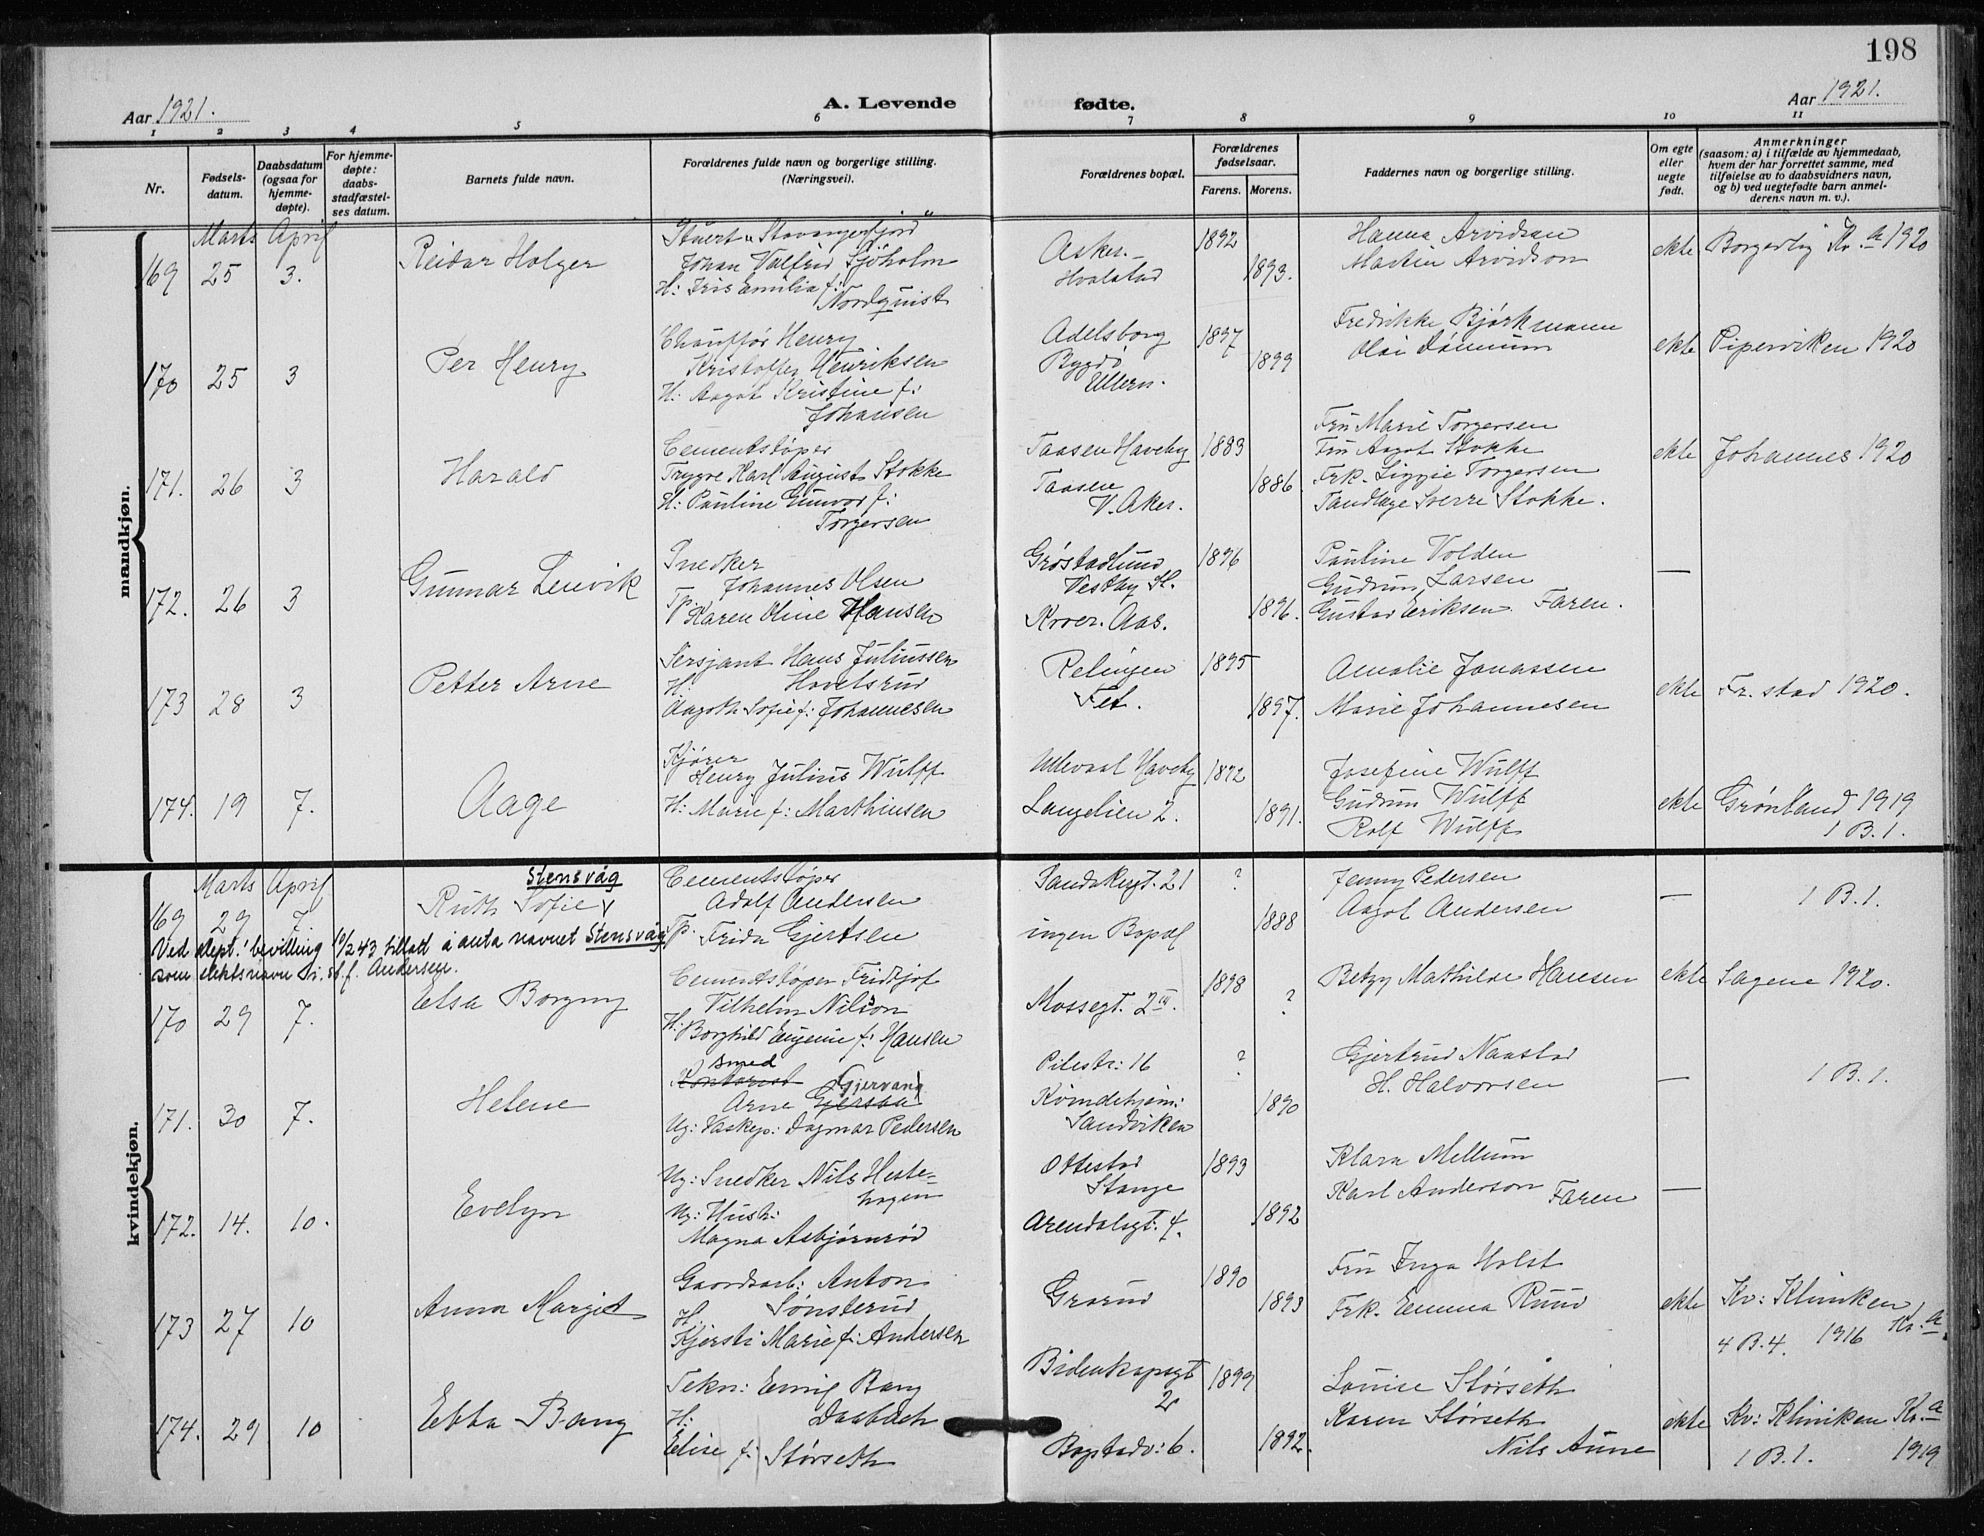 198
Aar 1921.
A. Levende fødte.
Aar 1921.
1 2 3 4 5 6 7 8 9 10 11
Nr.
Fødsels-
datum.
Daabsdatum
(ogsaa for
hjemme-
døpte).
For hjemme-
døpte:
daabs-
stadfæstel-
ses datum.
Barnets fulde navn.
Forældrenes fulde navn og borgerlige stilling.
(Næringsvei).
Forældrenes bopæl.
Forældrenes
fødselsaar.
Farens. Morens.
Faddernes navn og borgerlige stilling.
Om egte
eller
uegte
født.
Anmerkninger
(saasom: a) i tilfælde av hjemmedaab,
hvem der har forrettet samme, med
tilføielse av to daabsvidners navn,
og b) ved uegtefødte barn anmel-
derens navn m. v.).
mandkjøn.
Marts April
169 25 3. Reidar Holger
Stuert "Stavangerfjord"
Johan Valfrid Sjöholm
H: Iris Emilia f:
Nordquist
Asker.
Hvalstad
1892
1893.
Hanna Arvidson
Martin Arvidson
ekte Borgerlig Kr.a 1920
170 25 3 Per Henry
Chauffør Henry
Kristoffer Henriksen
H: Aagot Kristine f:
Johansen
Adelsborg
Bygdø
Ullern.
1897
1899
Fredrikke Bjørkmann
Olai Dømmum
ekte Piperviken 1920
171. 26 3 Harald
Cementstøper
Trygve Karl August Stokke
H: Pauline Gunvor f:
Torgersen
Taasen Haveby
Taasen
V. Aker.
1883
1886.
Fru Marie Torgersen
Fru Aagot Stokke
Frk. Siggie Torgersen
Tandlæge Sverre Stokke.
ekte Johannes 1920
172. 26 3 Gunnar Lenvik
Snedker
Johannes Olsen
Tp. Karen Oline Hansen
Grøstadlund
Vestby St.
Kroer. Aas.
1896
1896.
Pauline Volden
Gudrun Larsen
Gustav Eriksen. Faren.
—
173 28 3 Petter Arne
Sersjant Hans Juliussen
H: Hovelsrud
Aagoth Sofie f: Johannesen
Relingen
Fet.
1895
1897.
Amalie Jonassen
Marie Johannesen
ekte Fr.stad 1920.
174. 19 7. Aage
Kjører
Henry Julius Wulff
H: Marie f: Marthinsen
Ullevaal Haveby
Langelien 2.
1892
1891.
Josefine Wulff
Gudrun Wulff
Rolf Wulff
ekte Grønland 1919
1 B.1.
kvindekjøn.
Marts April
Stensvåg
169 29 7. Ruth Sofie
Ved dept. bevilling 10/2 43 tillatt å anta navnet Stensvåg
som slektsnavn i st. f. Andersen.
Cementstøper
Adolf Andersen
Tp. Frida Gjertsen
Sandakergt. 21
ingen Bopæl
?
1888
Jenny Pedersen
Aagot Andersen
—
1 B.1.
170 29 7. Elsa Borgny
Cementstøper Fridtjof
Vilhelm Nilson
H: Borghild Eugenie f: Hansen
Mossegt. 2 III.
1898
?
Betzy Mathilde Hansen
ekte Sagene 1920.
171. 30 7. Helene
smed
Kontorist Gjervang
Arne Gjersøe
Ug: Vaskep: Dagmar Pedersen
Pilestr: 16
Kvindehjem:
Sandviken
?
1890
Gjertrud Naastad
H. Halvorsen
—
1 B.1.
172. 14. 10. Evelyn
Ug: Snedker Nils Heste-
hagen
Ug: Hush:
Magna Asbjørnrød
Ottestad
Stange
Arendalsgt: 4.
1893
1892
Klara Mellum
Karl Anderson Faren
—
173 27 10 Anna Margit
Gaardsarb: Anton
H. Sønsterud
Kjersti Marie f: Andersen
Grorud
1890
1893
Fru Inga Holst
Frk. Emma Ruud
ekte Kv: Kliniken
4 B.4. 1916 Kr.a.
174. 29 10 Ebba Bang
Tekn: Emil Bang
H: Daabach
Elise f: Størseth
Bidenkapsgt
2
Bogstadv: 6.
1899
1892.
Louise Størseth
Karen Størseth
Nils Aune
ekte Kv: Kliniken Kr.a
1 B.1. 1919